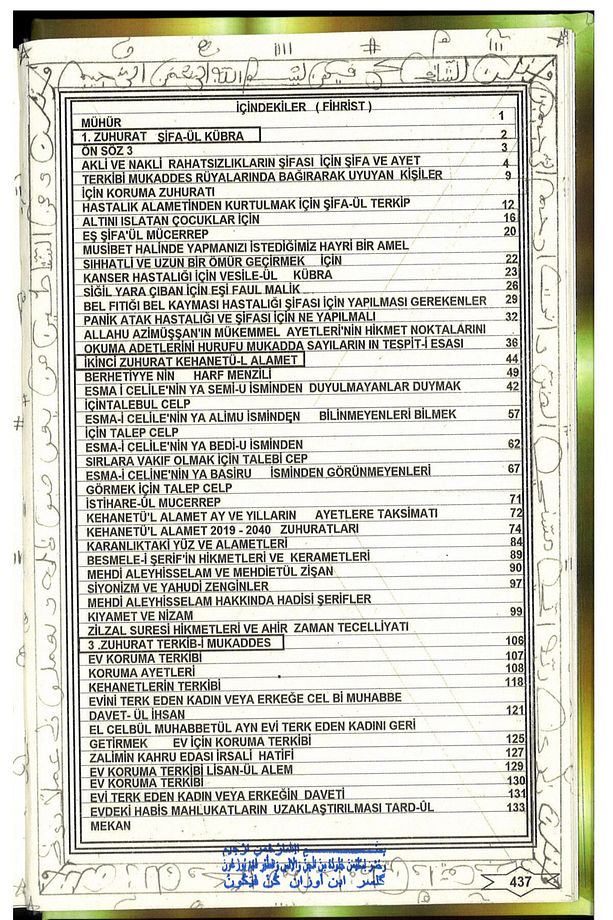 İÇİNDEKİLER ( FİHRİST )
MÜHÜR 1
1. ZUHURAT ŞİFA-ÜL KÜBRA 2
ÖN SÖZ 3 3
AKLİ VE NAKLİ RAHATSIZLIKLARIN ŞİFASI İÇİN ŞİFA VE AYET 4
TERKİBİ MUKADDES RÜYALARINDA BAĞIRARAK UYUYAN KİŞİLER 9
İÇİN KORUMA ZUHURATI
HASTALIK ALAMETİNDEN KURTULMAK İÇİN ŞİFA-ÜL TERKİP 12
ALTINI ISLATAN ÇOCUKLAR İÇİN 16
EŞ ŞİFA'ÜL MÜCERREP 20
MUSİBET HALİNDE YAPMANIZI İSTEDİĞİMİZ HAYRİ BİR AMEL
SIHHATLİ VE UZUN BİR ÖMÜR GEÇİRMEK İÇİN 22
KANSER HASTALIĞI İÇİN VESİLE-ÜL KÜBRA 23
SİĞİL YARA ÇIBAN İÇİN EŞİ FAUL MALİK 26
BEL FITIĞI BEL KAYMASI HASTALIĞI ŞİFASI İÇİN YAPILMASI GEREKENLER 29
PANİK ATAK HASTALIĞI VE ŞİFASI İÇİN NE YAPILMALI 32
ALLAHU AZİMÜŞŞAN'IN MÜKEMMEL AYETLERİ'NİN HİKMET NOKTALARINI
OKUMA ADETLERİNİ HURUFU MUKADDA SAYILARIN IN TESPİT-İ ESASI 36
İKİNCİ ZUHURAT KEHANETÜ-L ALAMET 44
BERHETİYYE NİN HARF MENZİLİ 49
ESMA İ CELİLE'NİN YA SEMİ-U İSMİNDEN DUYULMAYANLAR DUYMAK 42
İÇİNTALEBUL CELP
ESMA-İ CELİLE'NİN YA ALİMU İSMİNDEN BİLİNMEYENLERİ BİLMEK 57
İÇİN TALEP CELP
ESMA-İ CELİLE'NİN YA BEDİ-U İSMİNDEN 62
SIRLARA VAKIF OLMAK İÇİN TALEBİ CEP
ESMA-İ CELİNE'NİN YA BASİRU İSMİNDEN GÖRÜNMEYENLERİ 67
GÖRMEK İÇİN TALEP CELP
İSTİHARE-ÜL MUCERREP 71
KEHANETÜ'L ALAMET AY VE YILLARIN AYETLERE TAKSİMATI 72
KEHANETÜ'L ALAMET 2019 - 2040 ZUHURATLARI 74
KARANLIKTAKİ YÜZ VE ALAMETLERİ 84
BESMELE-İ ŞERİF'İN HİKMETLERİ VE KERAMETLERİ 89
MEHDİ ALEYHİSSELAM VE MEHDİETÜL ZİŞAN 90
SİYONİZM VE YAHUDİ ZENGİNLER 97
MEHDİ ALEYHİSSELAM HAKKINDA HADİSİ ŞERİFLER
KIYAMET VE NİZAM 99
ZİLZAL SURESİ HİKMETLERİ VE AHİR ZAMAN TECELLİYATI
3 .ZUHURAT TERKİB-İ MUKADDES 106
EV KORUMA TERKİBİ 107
KORUMA AYETLERİ 108
KEHANETLERİN TERKİBİ 118
EVİNİ TERK EDEN KADIN VEYA ERKEĞE CEL Bİ MUHABBE
DAVET- ÜL İHSAN 121
EL CELBÜL MUHABBETÜL AYN EVİ TERK EDEN KADINI GERİ
GETİRMEK EV İÇİN KORUMA TERKİBİ 125
ZALİMİN KAHRU EDASI İRSALİ HATİFİ 127
EV KORUMA TERKİBİ LİSAN-ÜL ALEM 129
EV KORUMA TERKİBİ 130
EVİ TERK EDEN KADIN VEYA ERKEĞİN DAVETİ 131
EVDEKİ HABİS MAHLUKATLARIN UZAKLAŞTIRILMASI TARD-ÜL 133
MEKAN
437